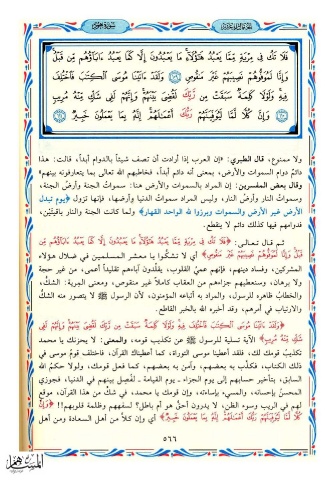 فَلَا تَكُ فِي مِرْيَةٍ مِّمَّا يَعْبُدُ هَٰؤُلَاءِ مَا يَعْبُدُونَ إِلَّا كَمَا يَعْبُدُ ءَابَاؤُهُم مِّن قَبْلُ
وَإِنَّا لَمُوَفُّوهُمْ نَصِيبَهُمْ غَيْرَ مَنقُوصٍ ۝ وَلَقَدْ ءَاتَيْنَا مُوسَى الْكِتَٰبَ فَاخْتُلِفَ
فِيهِ وَلَوْلَا كَلِمَةٌ سَبَقَتْ مِن رَّبِّكَ لَقُضِيَ بَيْنَهُمْ وَإِنَّهُمْ لَفِي شَكٍّ مِّنْهُ مُرِيبٍ
۝ وَإِنَّ كُلًّا لَّمَّا لَيُوَفِّيَنَّهُمْ رَبُّكَ أَعْمَٰلَهُمْ إِنَّهُ بِمَا يَعْمَلُونَ خَبِيرٌ ۝
ولا ممنوع، قال الطبري: «إن العرب إذا أرادت أن تصف شيئاً بالدوام أبداً، قالت: هذا
دائم دوام السموات والأرض، بمعنى أنه دائم أبداً، فخاطبهم الله تعالى بما يتعارفونه بينهم»
وقال بعض المفسرين: إن المراد بالسموات والأرض هنا: سمواتُ الجنة وأرضُ الجنة،
وسمواتُ النار وأرضُ النار، وليس المراد سمواتُ الدنيا وأرضها، فإنها تزول ﴿يوم تبدل
الأرض غير الأرض والسموات وبرزوا لله الواحد القهار﴾ ولما كانت الجنة والنار باقيتَيْن،
فدوامهم فيها كذلك دائم لا ينقطع.
ثم قال تعالى: ﴿فَلَا تَكُ فِي مِرْيَةٍ مِّمَّا يَعْبُدُ هَٰؤُلَاءِ مَا يَعْبُدُونَ إِلَّا كَمَا يَعْبُدُ ءَابَاؤُهُم مِّن
قَبْلُ وَإِنَّا لَمُوَفُّوهُمْ نَصِيبَهُمْ غَيْرَ مَنقُوصٍ﴾ أي لا تشكُّوا يا معشر المسلمين في ضلال هؤلاء
المشركين، وفساد دينهم، فإنهم عميُ القلوب، يقلِّدون آباءهم تقليداً أعمى، من غير حجة
ولا برهان، وسنعطيهم جزاءهم من العقاب كاملاً غير منقوص، ومعنى المِرية: الشكُّ،
والخطابُ ظاهره للرسول، والمراد به أتباعه المؤمنون، لأن الرسول ﷺ لا يتصور منه الشكُّ
والارتياب في أمرهم، وقد أخبره الله بالخبر القاطع.
﴿وَلَقَدْ ءَاتَيْنَا مُوسَى الْكِتَٰبَ فَاخْتُلِفَ فِيهِ وَلَوْلَا كَلِمَةٌ سَبَقَتْ مِن رَّبِّكَ لَقُضِيَ بَيْنَهُمْ وَإِنَّهُمْ لَفِي
شَكٍّ مِّنْهُ مُرِيبٍ﴾ الآية تسلية للرسول ﷺ عن تكذيب قومه، والمعنى: لا يحزنك يا محمد
تكذيبُ قومك لك، فلقد أعطينا موسى التوراة، كما أعطيناك القرآن، فاختلف قومُ موسى في
ذلك الكتاب، فكذَّب به بعضهم، وآمن به بعضهم، كما فعل قومك، ولولا حكمُ الله
السابق، بتأخير حسابهم إلى يوم الجزاء - يوم القيامة - لفُصِل بينهم في الدنيا، فجوزي
المحسنُ بإحسانه، والمسيء بإساءته، وإن قومك يا محمد، في شكٍّ من هذا القرآن، موقع
لهم في الريب وسوء الظن، لا يدرون أحقٌّ هو أم باطل؟ لسفههم وظلمة قلوبهم!! ﴿وَإِنَّ
كُلًّا لَّمَّا لَيُوَفِّيَنَّهُمْ رَبُّكَ أَعْمَٰلَهُمْ إِنَّهُ بِمَا يَعْمَلُونَ خَبِيرٌ﴾ أي وإن كلاً من أهل السعادة ومن أهل
٥٦٦